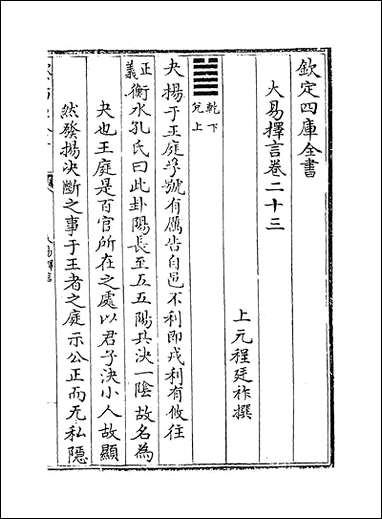 欽定四庫全書
大易擇言卷二十三
上元程廷祚撰
乾下
兌上
夬揚于王庭孚號有厲告自邑不利即戎利有攸往
正義衡水孔氏曰此卦陽長至五五陽共決一陰故名為
夬也王庭是百官所在之處以君子決小人故顯
然發揚決斷之事于王者之庭示公正而无私隱